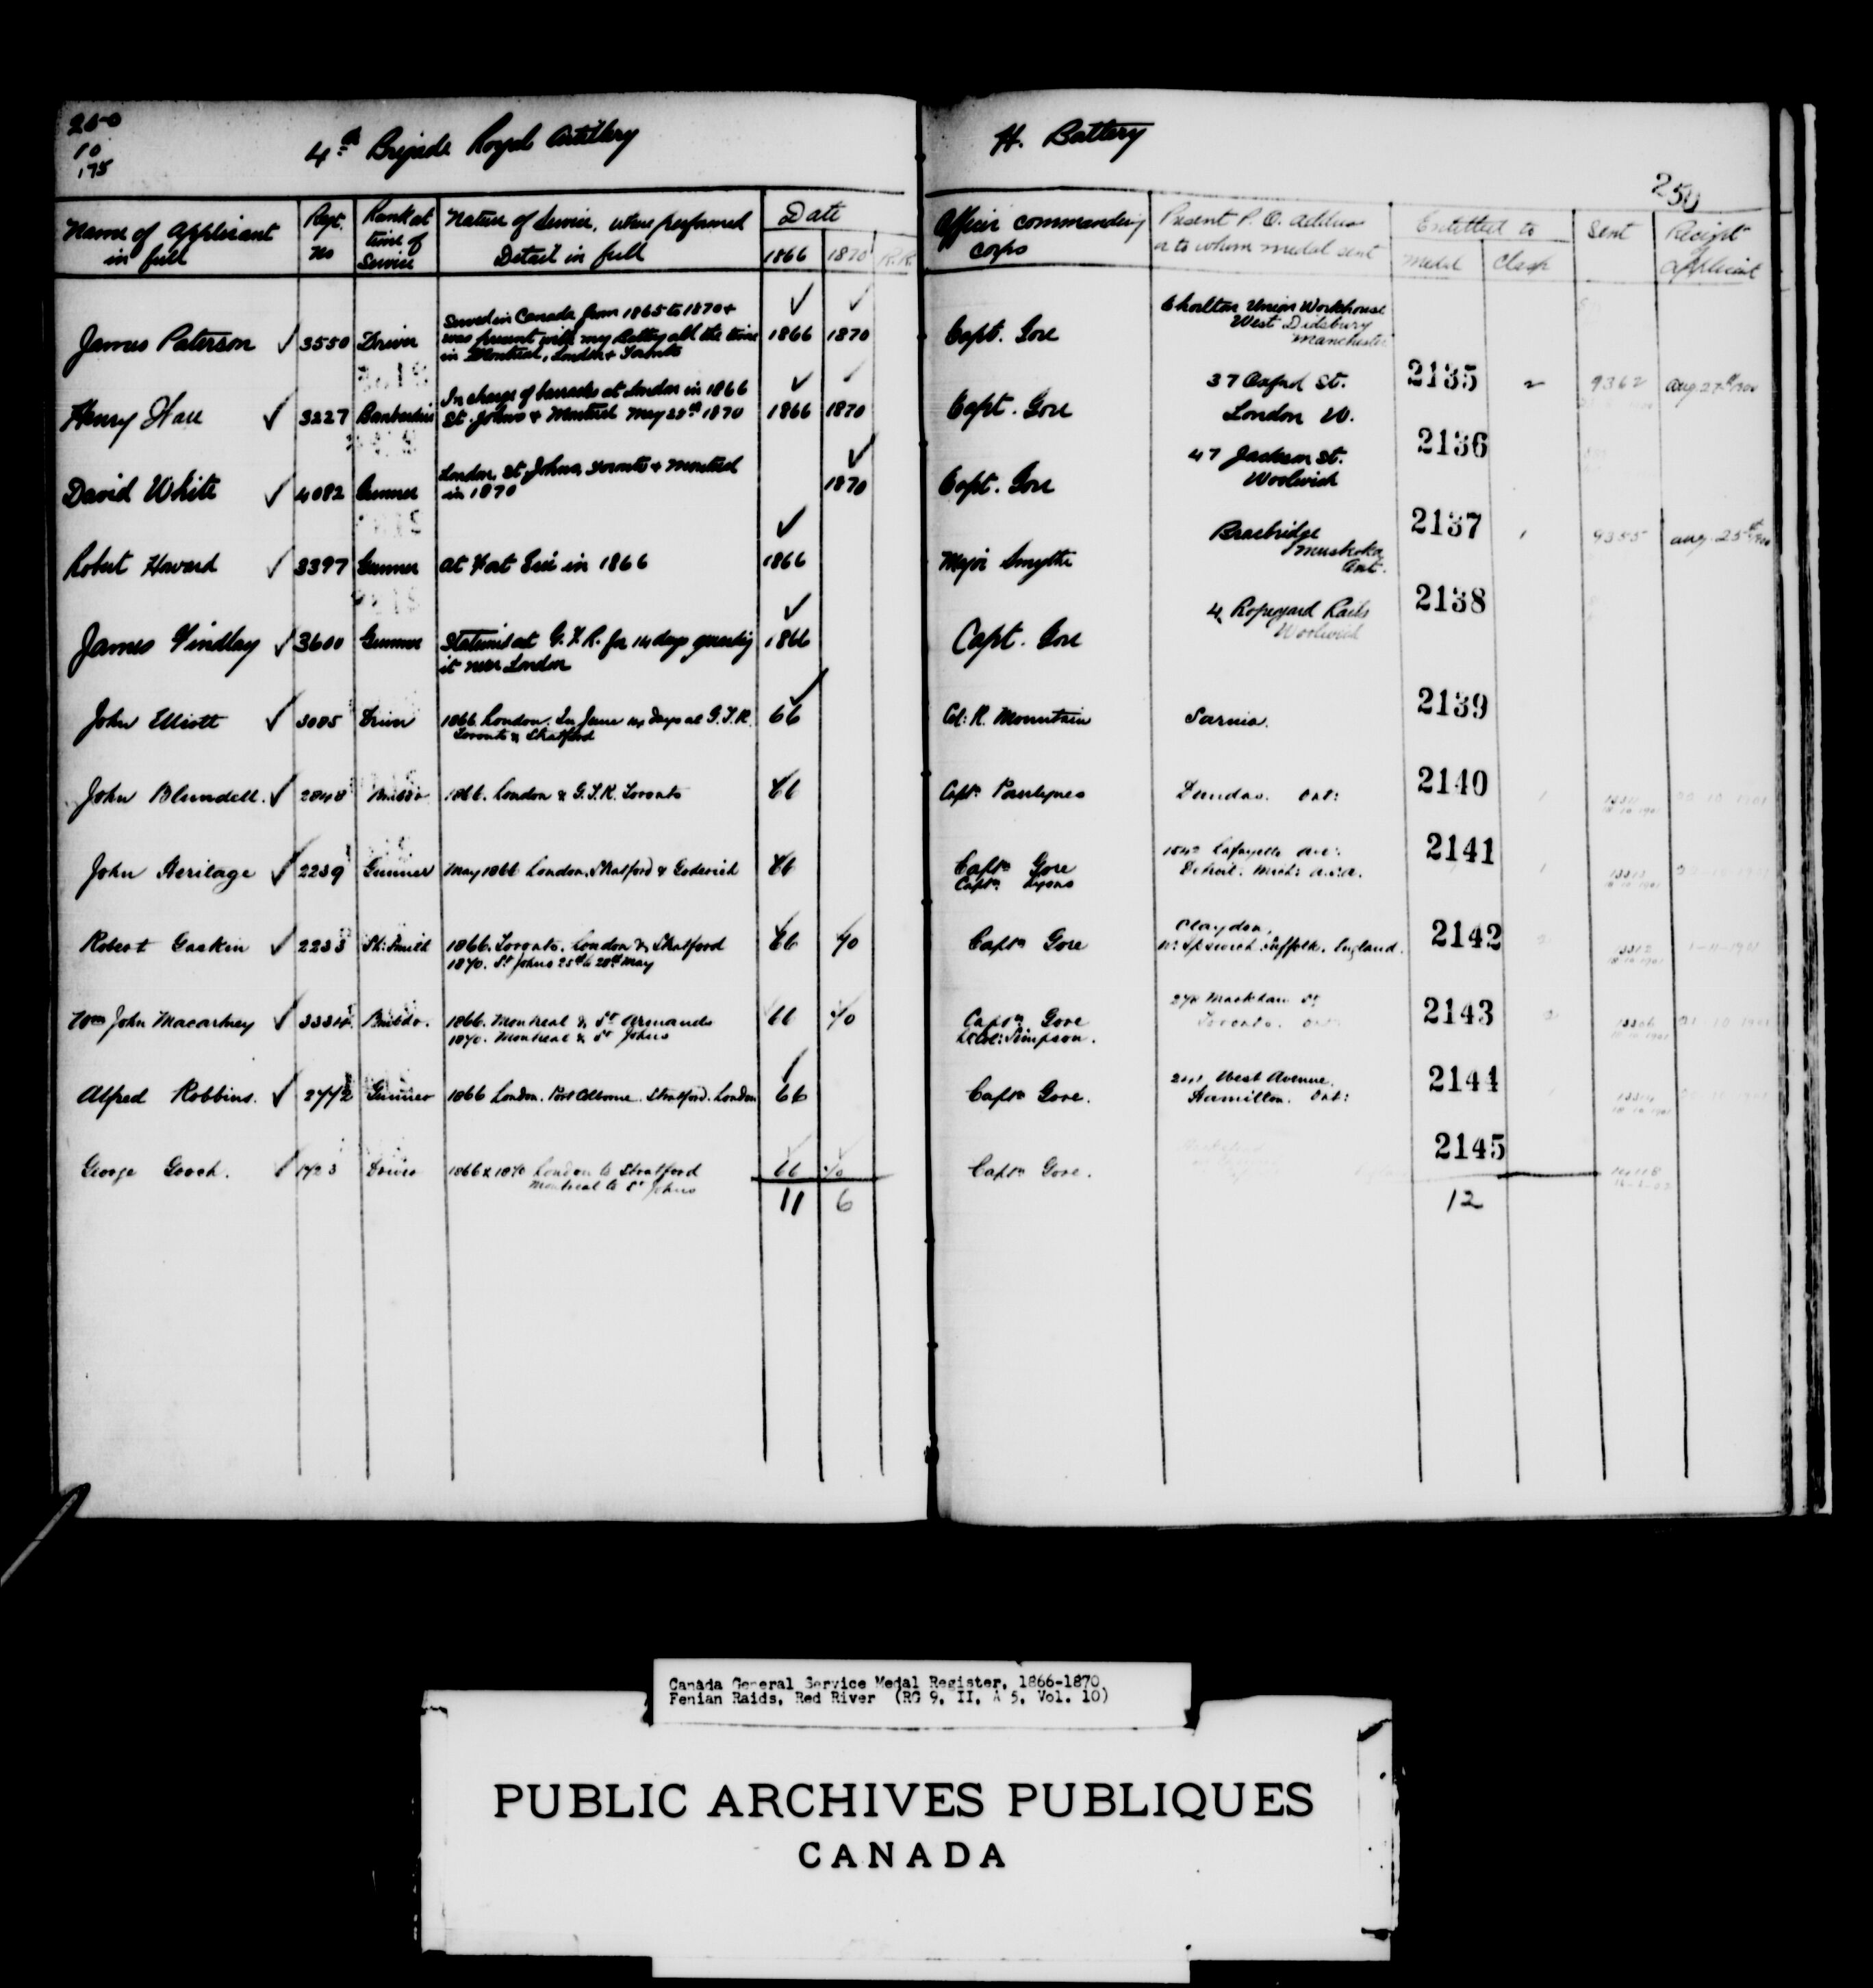 250
10
175
4th Brigade Royal Artillery
H. Battery
250
Name of Applicant in full
Regt. No
Rank at time of Service
Nature of Service, where performed Detail in full
Date
1866 1870 R.R.
Officer commanding corps
Present P.O. Address or to whom medal sent
Entitled to
Medal Clasp
Sent
Receipt of applicant
James Paterson ✓ 3550 Driver
Served in Canada from 1865 to 1870 &
was present with my Battery all the time
in Montreal, London & Toronto
1866 1870 Capt. Gore
Chorlton Union Workhouse
West Didsbury
Manchester
2135 2 9362 Aug 27th 1900
Henry Hall ✓ 3227 Bombardier
In charge of barracks at London in 1866
St. Johns & Montreal May 25th 1870
1866 1870 Capt. Gore
37 Oxford St.
London W.
2136
David White ✓ 4082 Gunner
London, St Johns, Toronto & Montreal
in 1870
1870 Capt. Gore
47 Jackson St.
Woolwich
2137 1 9355 Aug. 25th 1900
Robert Howard ✓ 3397 Gunner At Fort Erie in 1866
1866 Major Smythe
Bracebridge
Muskoka
Ont.
2138
James Findlay ✓ 3600 Gunner
Stationed at G.T.R. for 14 days guarding
it near London
1866 Capt. Gore
4 Ropeyard Rails
Woolwich
2139
John Elliott ✓ 3085 Driver
1866 London. In June 14 days at G.T.R.
Toronto & Stratford
66 Col: R. Mountain Sarnia.
2140
John Blundell. ✓ 2848 Bmbdr 1866. London & G.T.R. Toronto
66 Capt. Dundas. Ont:
2141
John Heritage ✓ 2239 Gunner May 1866 London, Stratford & Goderich
66 Captn Gore
Captn Lyons
1542 Lafayette Ave:
Detroit. Mich: U.S.A.
2142
Robert Gaskin ✓ 2233 Sh: Smith
1866. Toronto. London & Stratford
1870. St Johns 25th to 28th May
66 70 Captn Gore
Claydon,
Nr: Ipswich. Suffolk. England.
2143
Wm John Macartney ✓ Bmbdr.
1866. Montreal & St Armands
1870. Montreal & St Johns
66 70 Captn Gore
Lt Col: Simpson.
Markham St
Toronto. Ont
2144
Alfred Robbins. ✓ 2772 Gunner 1866 London. Port Colborne. Stratford. London
66 Captn Gore.
241 West Avenue.
Hamilton. Ont:
2145
George Gooch. ✓ Driver
1866 & 1870 London to Stratford
Montreal to St Johns
66 70 Captn Gore.
11 6 12
Canada General Service Medal Register, 1866-1870
Fenian Raids, Red River (RG 9, II, A 5, Vol. 10)
PUBLIC ARCHIVES PUBLIQUES
CANADA